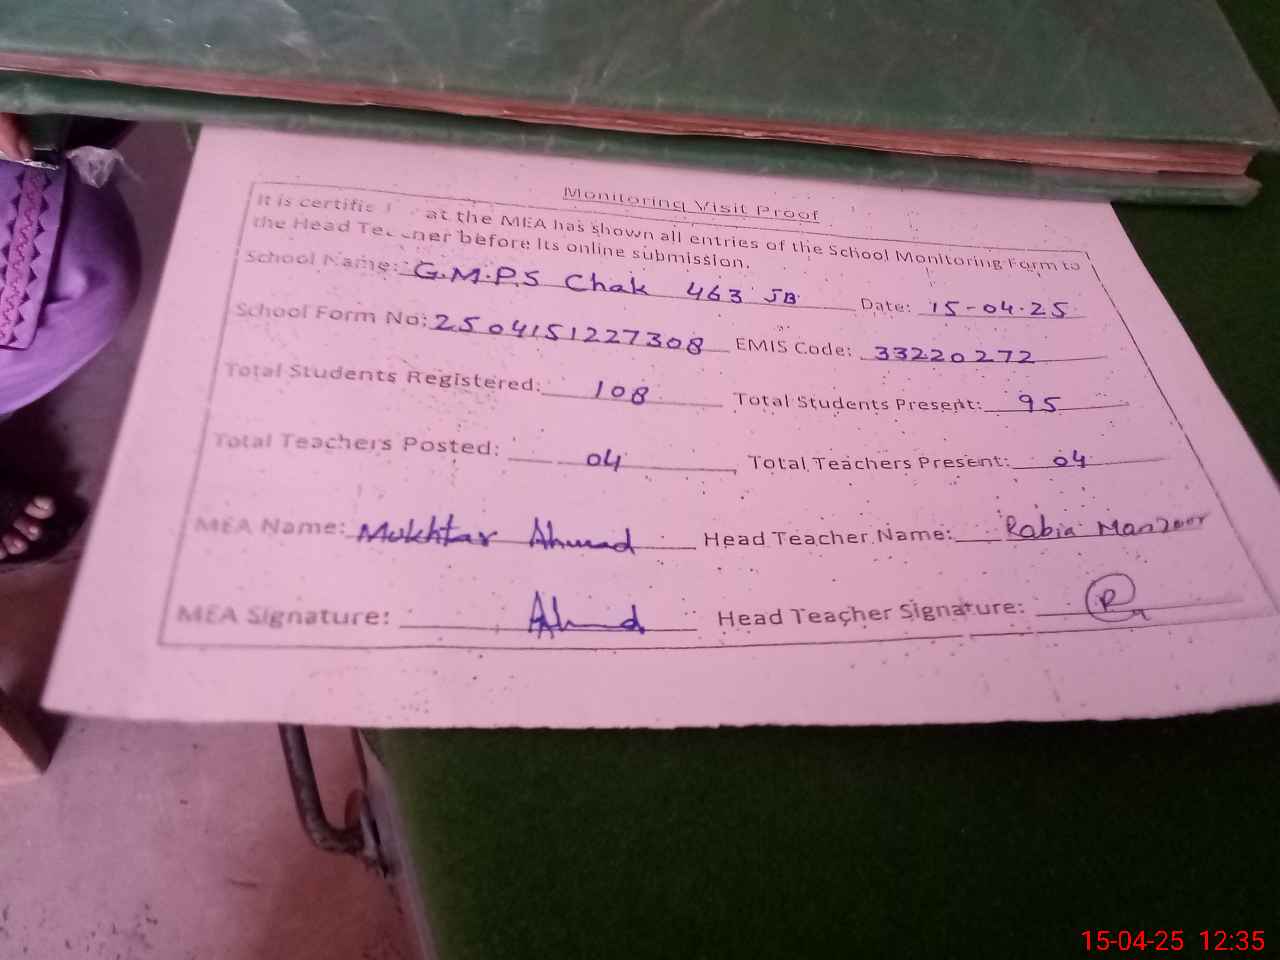 Monitoring Visit Proof
It is certifie at the MEA has shown all entries of the School Monitoring Form to
the Head Teacher before its online submission.
School Name: G.M.P.S Chak 463 JB Date: 15-04-25
School Form No: 2504151227308 EMIS Code: 33220272
Total Students Registered: 108 Total Students Present: 95
Total Teachers Posted: 04 Total Teachers Present: 04
MEA Name: Mukhtar Ahmad Head Teacher Name: Rabia Manzoor
MEA Signature: Ahmad Head Teacher Signature:
15-04-25 12:35